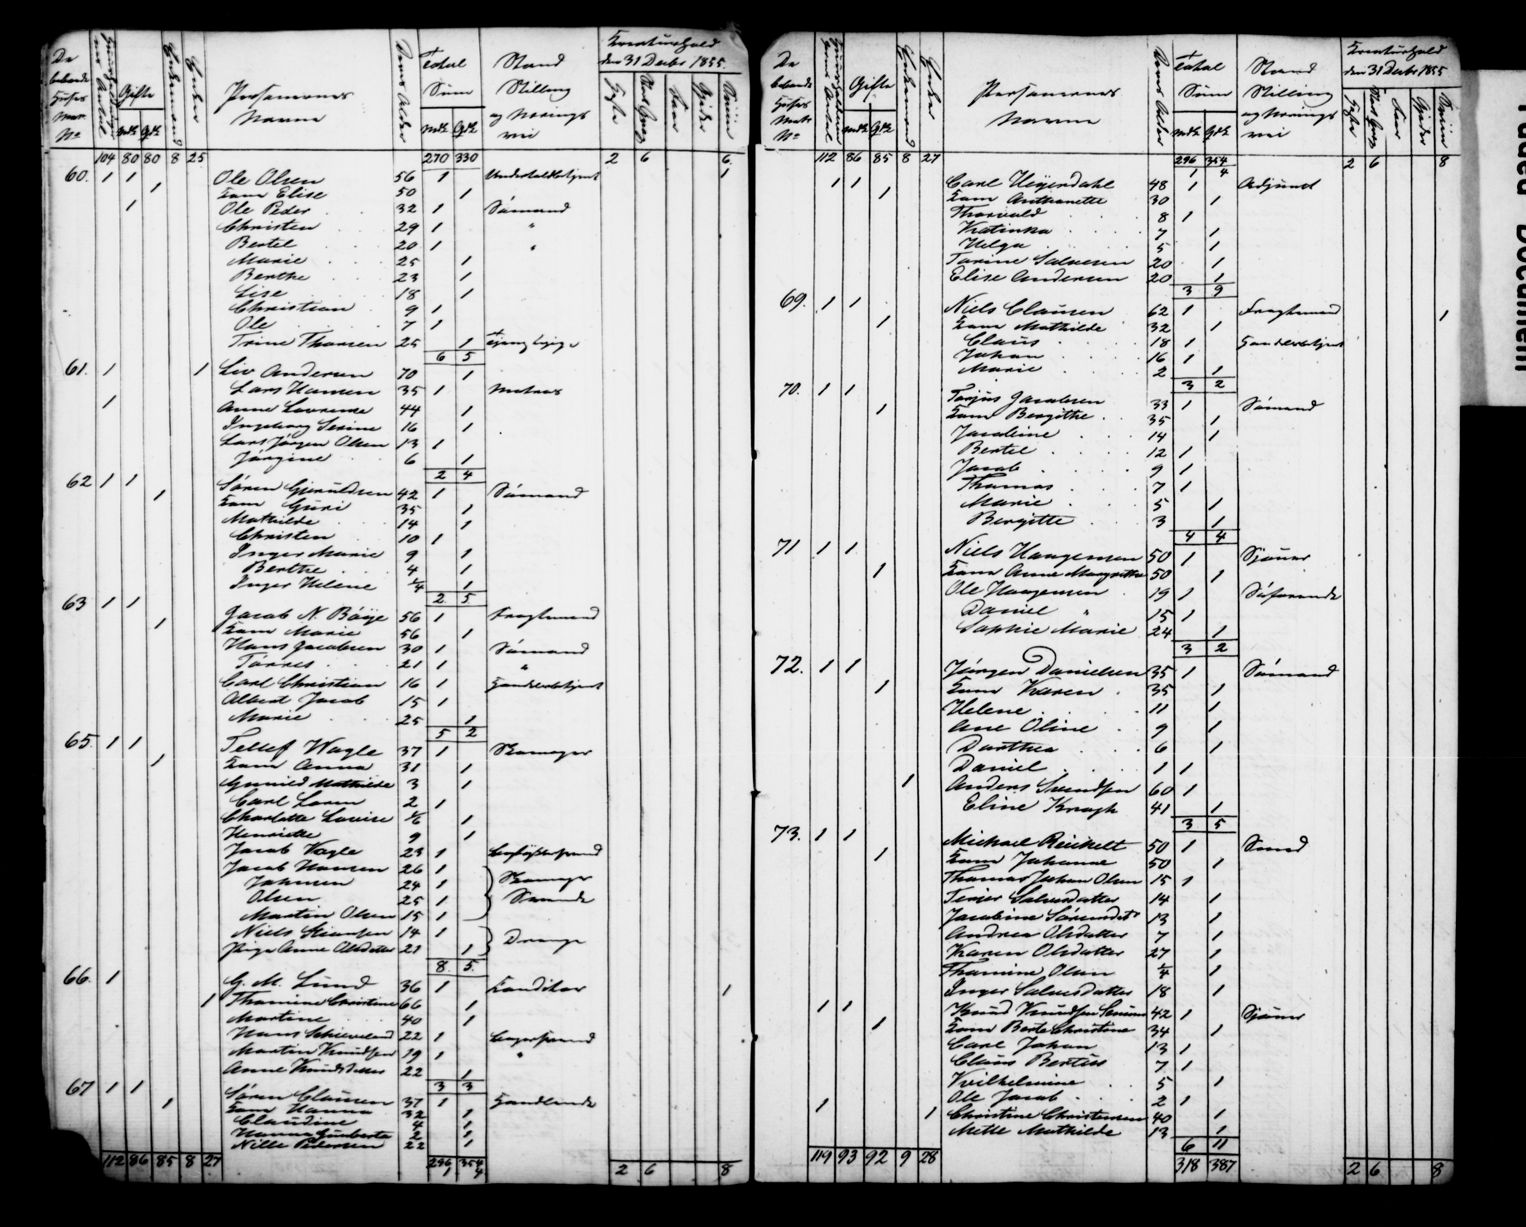 De
bebœde
Huses
Matr.
No
Gifte
mdk Qdk
Enkemænd
Enker
Personernes
Navne
Deres Alder
Total
Sum
mdk Qdk
Stand
Stilling
og Nærings
vei
Kreaturhold
den 31 Decbr 1855
Heste
Faar
Sviin
104 80 80 8 25 270 330 2 6 6
60. 1 1 Ole Olsen 56 1 1
1 Kone Elise 50 1
1 Ole Peder 32 1 Sömand
Christen 29 1 "
Bertel 20 1 "
Marie 25 1
Berthe 23 1
Lise 18 1
Christian 9 1
Ole 7 1
Trine Thomsen 25 1
6 5
61. 1 1 Liv Andersen 70 1
Lars Hansen 35 1 Matros
1 Anne Laurense 44 1
Ingeborg Serine 16 1
Lars Jörgen Olsen 13 1
Jörgine 6 1
2 4
62 1 1 Sören Gjeruldsen 42 1 Sömand
1 Kone Guri 35 1
Mathilde 14 1
Christen 10 1
Inger Marie 9 1
Berthe 4 1
Inger Helene ¼ 1
2 5
63 1 1 Jacob N. Böije 56 1 Fragtemand
1 Kone Marie 56 1
Hans Jacobsen 30 1 Sömand
Törres 21 1 "
Carl Christian 16 1 Handelsbetjent
Albert Jacob 15 1
Marie 25 1
5 2
65. 1 1 Tellef Wagle 37 1 Skomager
1 Kone Anna 31 1
Gunild Mathilde 3 1
Carl Loren 2 1
Charlotte Lovise 1
Henriette 9 1
Jacob Vagle 23 1
Jacob Hansen 26 1 Skomager
Johnsen 24 1 Svende
Olsen 25 1
Martin Olsen 15 1
Niels Steansen 14 1 Drenge
Pige Anne Olsdatter 21 1
8 5
66. 1 G. M. Lund 36 1 Konditor 1
1 Thomine Christine 66 1
Martine 40 1
Hans 22 1 Bagersvend
Martin Knudsen 19 1 "
Anne Knudsdatter 22 1
3 3
67 1 1 Sören Clausen 37 1 Handlende
1 Kone Hanna 32 1
Claudine 4 1
Hanna Gunberta 2 1
Nille Pedersen 22 1
112 86 85 8 27 296 354 2 6 8
1 4
De
bebœde
Huses
Matr.
No
Gifte
mdk Qdk
Enkemænd
Enker
Personernes
Navne
Deres Alder
Total
Sum
mdk Qdk
Stand
Stilling
og Nærings
vei
Kreaturhold
den 31 Decbr 1855
Heste
Faar
Sviin
112 86 85 8 27 296 354 2 6 8
1 4
1 1 Carl Heyerdahl 48 1 Adjunct
1 Kone Anthonette 30 1
Thorvald 8 1
Katinka 7 1
Helga 5 1
Torine Salvesen 20 1
Elise Andersen 20 1
3 9
69. 1 1 Niels Clausen 62 1 Fragtemand 1
1 Kone Mathilde 32 1
Claus 18 1 Handelsbetjent
Johan 16 1
Marie 2 1
3 2
70. 1 1 Torjus Jacobsen 33 1 Sömand
1 Kone Bergithe 35 1
Jacobine 14 1
Bertel 12 1
Jacob 9 1
Thomas 7 1
Marie 5 1
Bergitte 3 1
4 4
71 1 1 Niels Haagensen 50 1 Sjouer
1 Kone Anne Margrethe 50 1
Ole Haagensen 19 1 Söfarende
Daniel " 15 1
Sophie Marie 24 1
3 2
72. 1 1 Jörgen Danielsen 35 1 Sömand
1 Kone Karen 35 1
Helene 11 1
Ane Oline 9 1
Dorthea 6 1
Daniel 1 1
1 Anders Svendsen 60 1
Eline Krogh 41 1
3 5
73. 1 1 Michael Reichelt 50 1 Smed
1 Kone Johanne 50 1
Thomas Johan Olsen 15 1
Terjer Salvesdatter 14 1
Jacobine Sörensdtr 13 1
Andrea Olsdatter 7 1
Karen Olsdatter 27 1
Thomine Olsen ¼ 1
Inger Salvesdatter 18 1
1 1 Knud Knudsen 42 1 Sjouer
1 Kone Berte Christine 34 1
Carl Johan 13 1
Claus Bertius 7 1
Vilhelmine 5 1
Ole Jacob 2 1
1 1 Christine Christensen 40 1
Mette Mathilde 13 1
6 11
119 93 92 9 28 318 387 2 6 8
Document